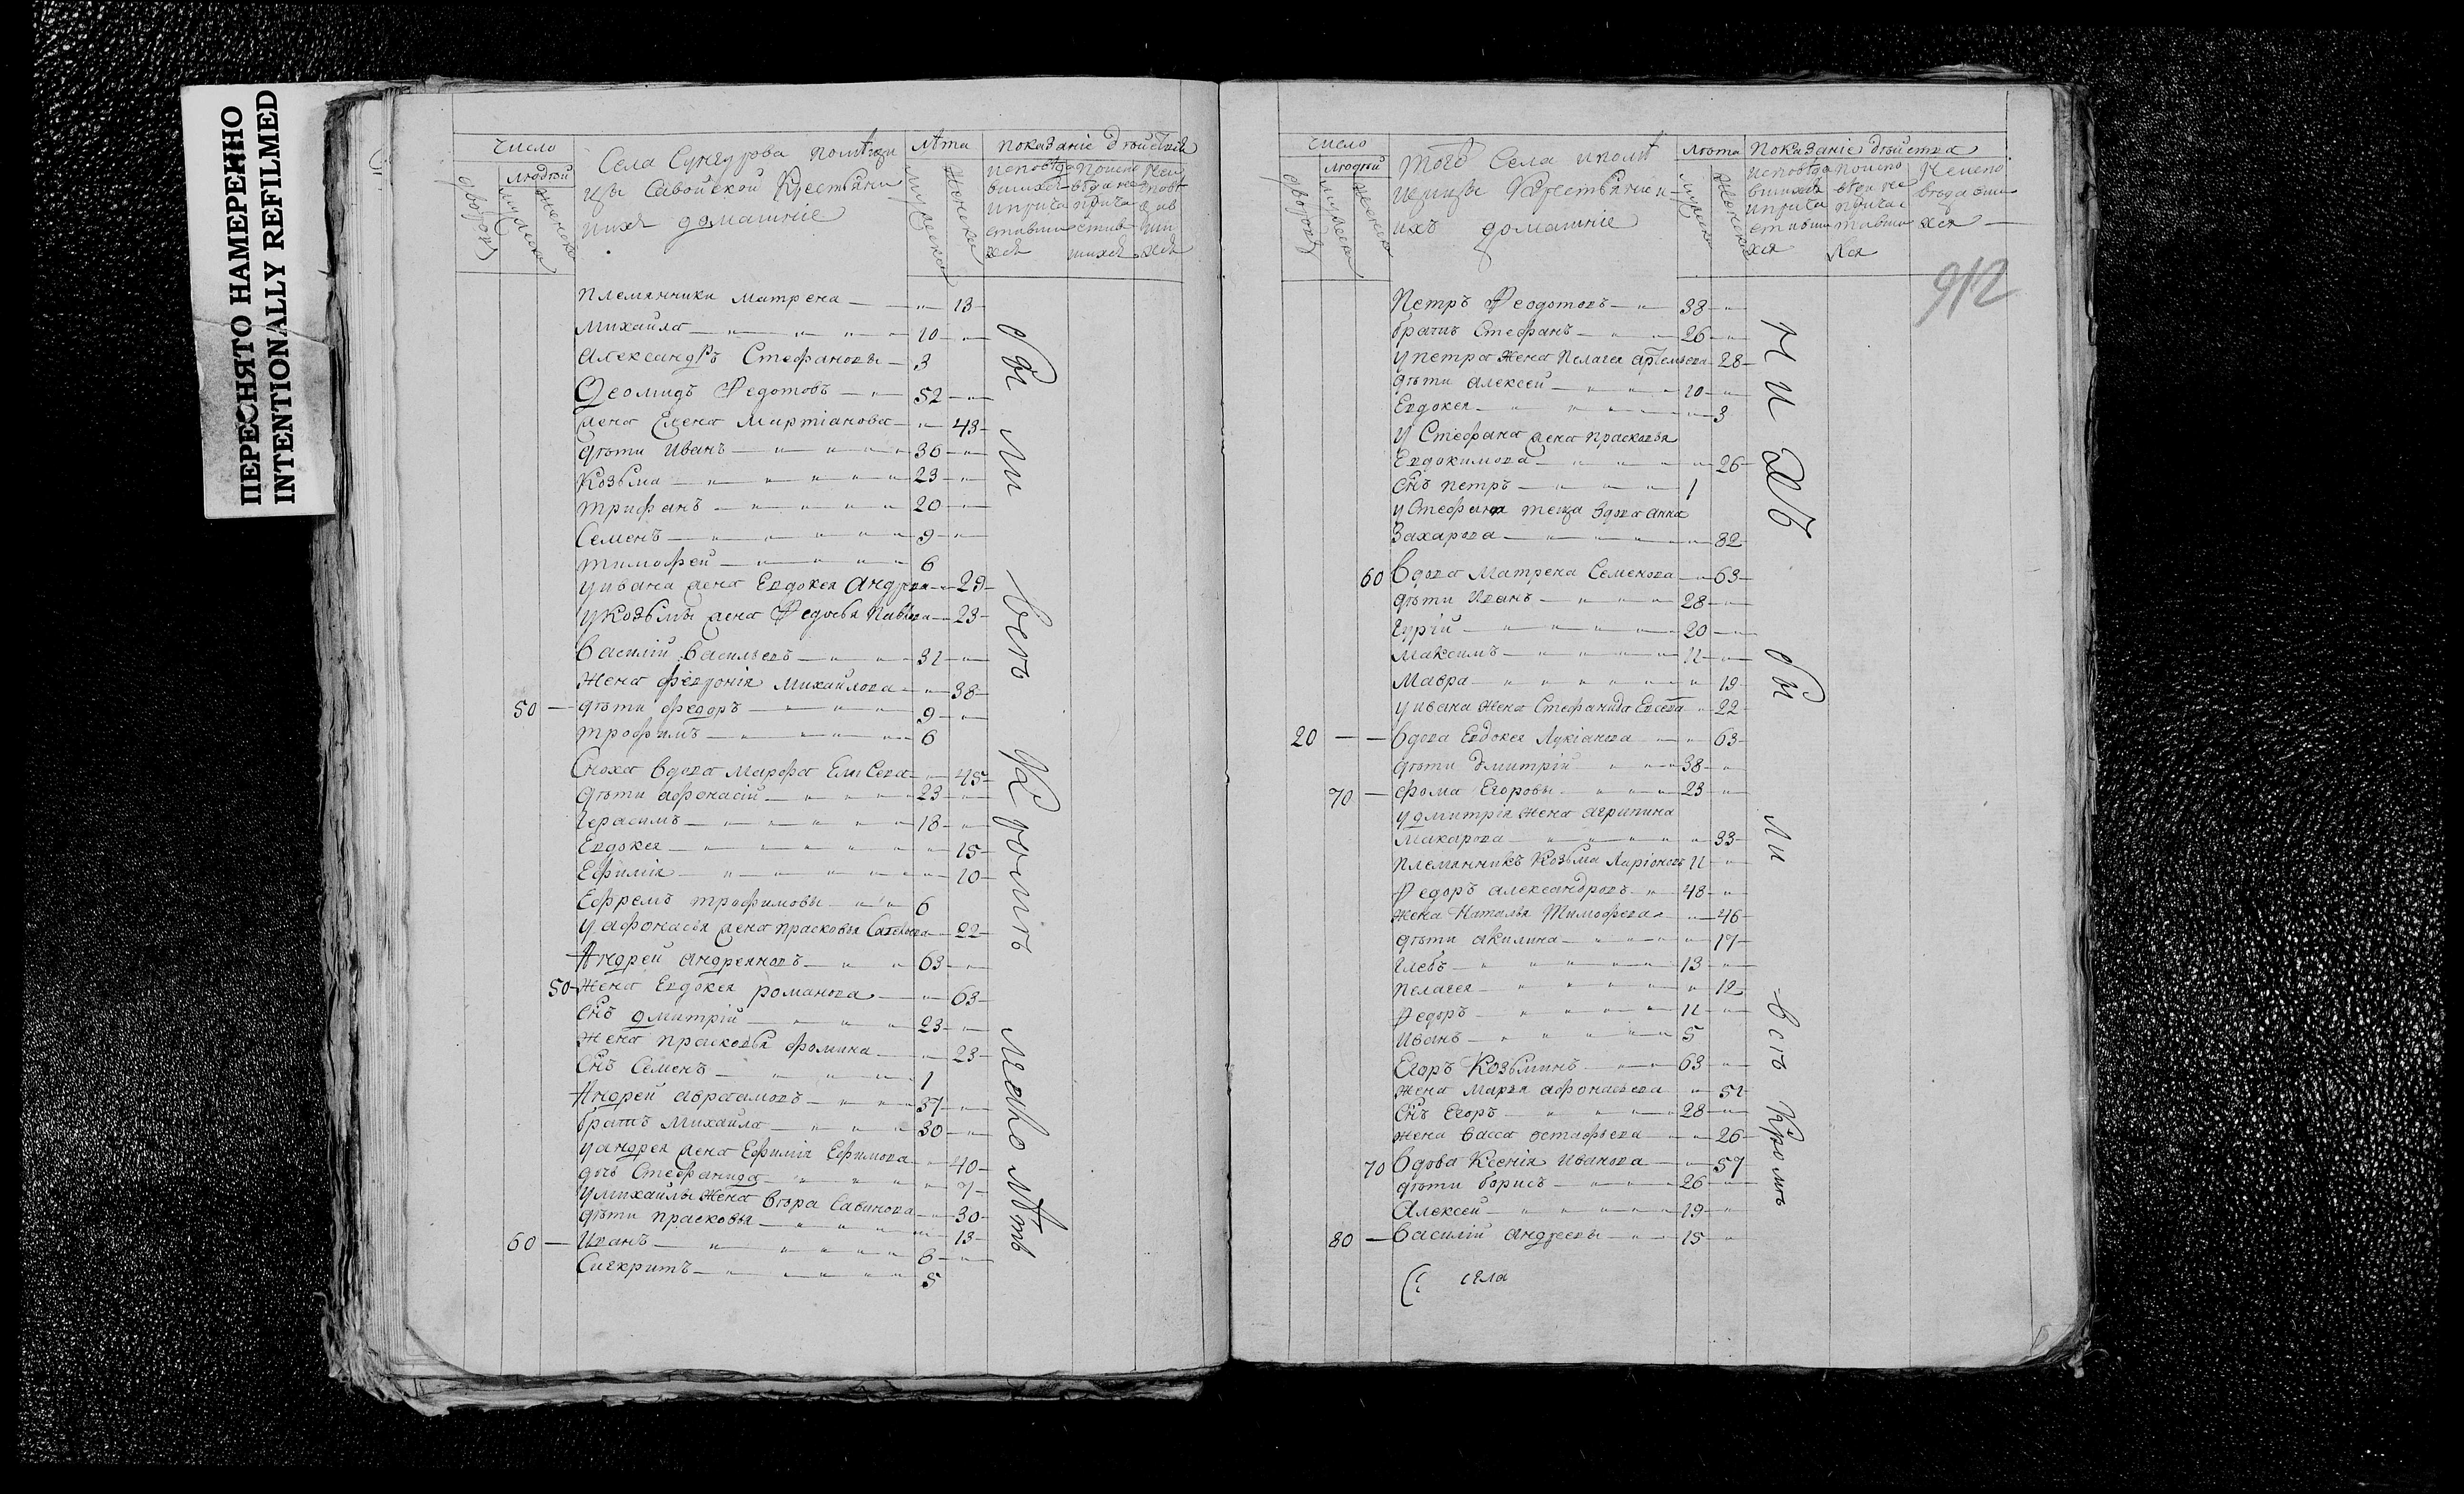 ПЕРЕСНЯТО НАМЕРЕННО
INTENTIONALLY REFILMED
число
людей
дворовъ
мужеска
женска
Села Сунгурова помѣщи
цы Савойской Крестьяни
ихъ домашнiе
лѣта
мужеска
женска
показанiе дѣйства
исповѣдо
вшихся
и прича
стивши
хся
Племянники Матрена 13
Михаила 10
Александръ Стефановы 3
Деомидъ Федотовъ 52
жена Елена Мартiанова 43
дѣти Иванъ 30
Козьма 23
Трифанъ 20
Семенъ 9
Тимофей 6
у Ивана жена Евдокея Андреева 29
у Козьмы жена Федосья Павлова 23
Василiй Васильевъ 31
Жена Февронiя Михайлова 38
50 дѣти Федоръ 9
Трофимъ 6
Сноха вдова Марфа Елисева 45
дѣти Афонасiй 23
Герасимъ 18
Евдокея 15
Ефимiя 10
Ефремъ Трофимовы 6
у Афонасья жена Прасковья Савельева 22
Андрей Андреяновъ 63
50 Жена Евдокея Романова 63
Снъ Дмитрiй 23
Жена Прасковья Фомина 23
Снъ Семенъ 1
Андрей Аврамовъ 37
братъ Михаила 30
у Андрея жена Ефимiя Ефимова 40
дочь Стефанида 7
у Михаилы жена Вѣра Савинова 30
дѣти Прасковья 13
60 Иванъ 6
Сигкритъ 5
были всѣ Кромѣ малолѣтъ
число
людей
дворовъ
мужеска
женска
того Села и помѣ
щицы Крестьяне и
ихъ домашнiе
лѣта
мужеска
женска
Показанiе дѣйства
исповѣдо
вшихся
и прича
стивши
хся
912
Петръ Феодотовъ 38
братъ Стефанъ 26
у Петра жена Пелагея Артемьева 28
дѣти Алексей 10
Евдокея 3
у Стефана жена Прасковья
Евдокимова 26
Снъ Петръ 1
у Стефана теща вдова Анна
Захарова 82
60 Вдова Матрена Семенова 63
дѣти Иванъ 28
Гурiй 20
Максимъ 11
Мавра 19
у Ивана жена Стефанида Евсева 22
20 Вдова Евдокея Лукiанова 63
дѣти Дмитрiй 38
70 Фома Егоровы 23
у Дмитрiя жена Агрипина
Макарова 33
Племянникъ Козьма Ларiоновъ 11
Федоръ Александровъ 48
жена Наталья Тимофева 46
дѣти Акилина 17
Глебъ 13
Пелагея 12
Федоръ 11
Иванъ 5
Егоръ Козьминъ 63
жена Марья Афонасьева 51
Снъ Егоръ 28
жена Васса Остафьева 26
70 Вдова Ксенiя Иванова 57
дѣти Борисъ 26
Алексей 19
80 Василiй Андреевы 15
были всѣ Кромѣ
села